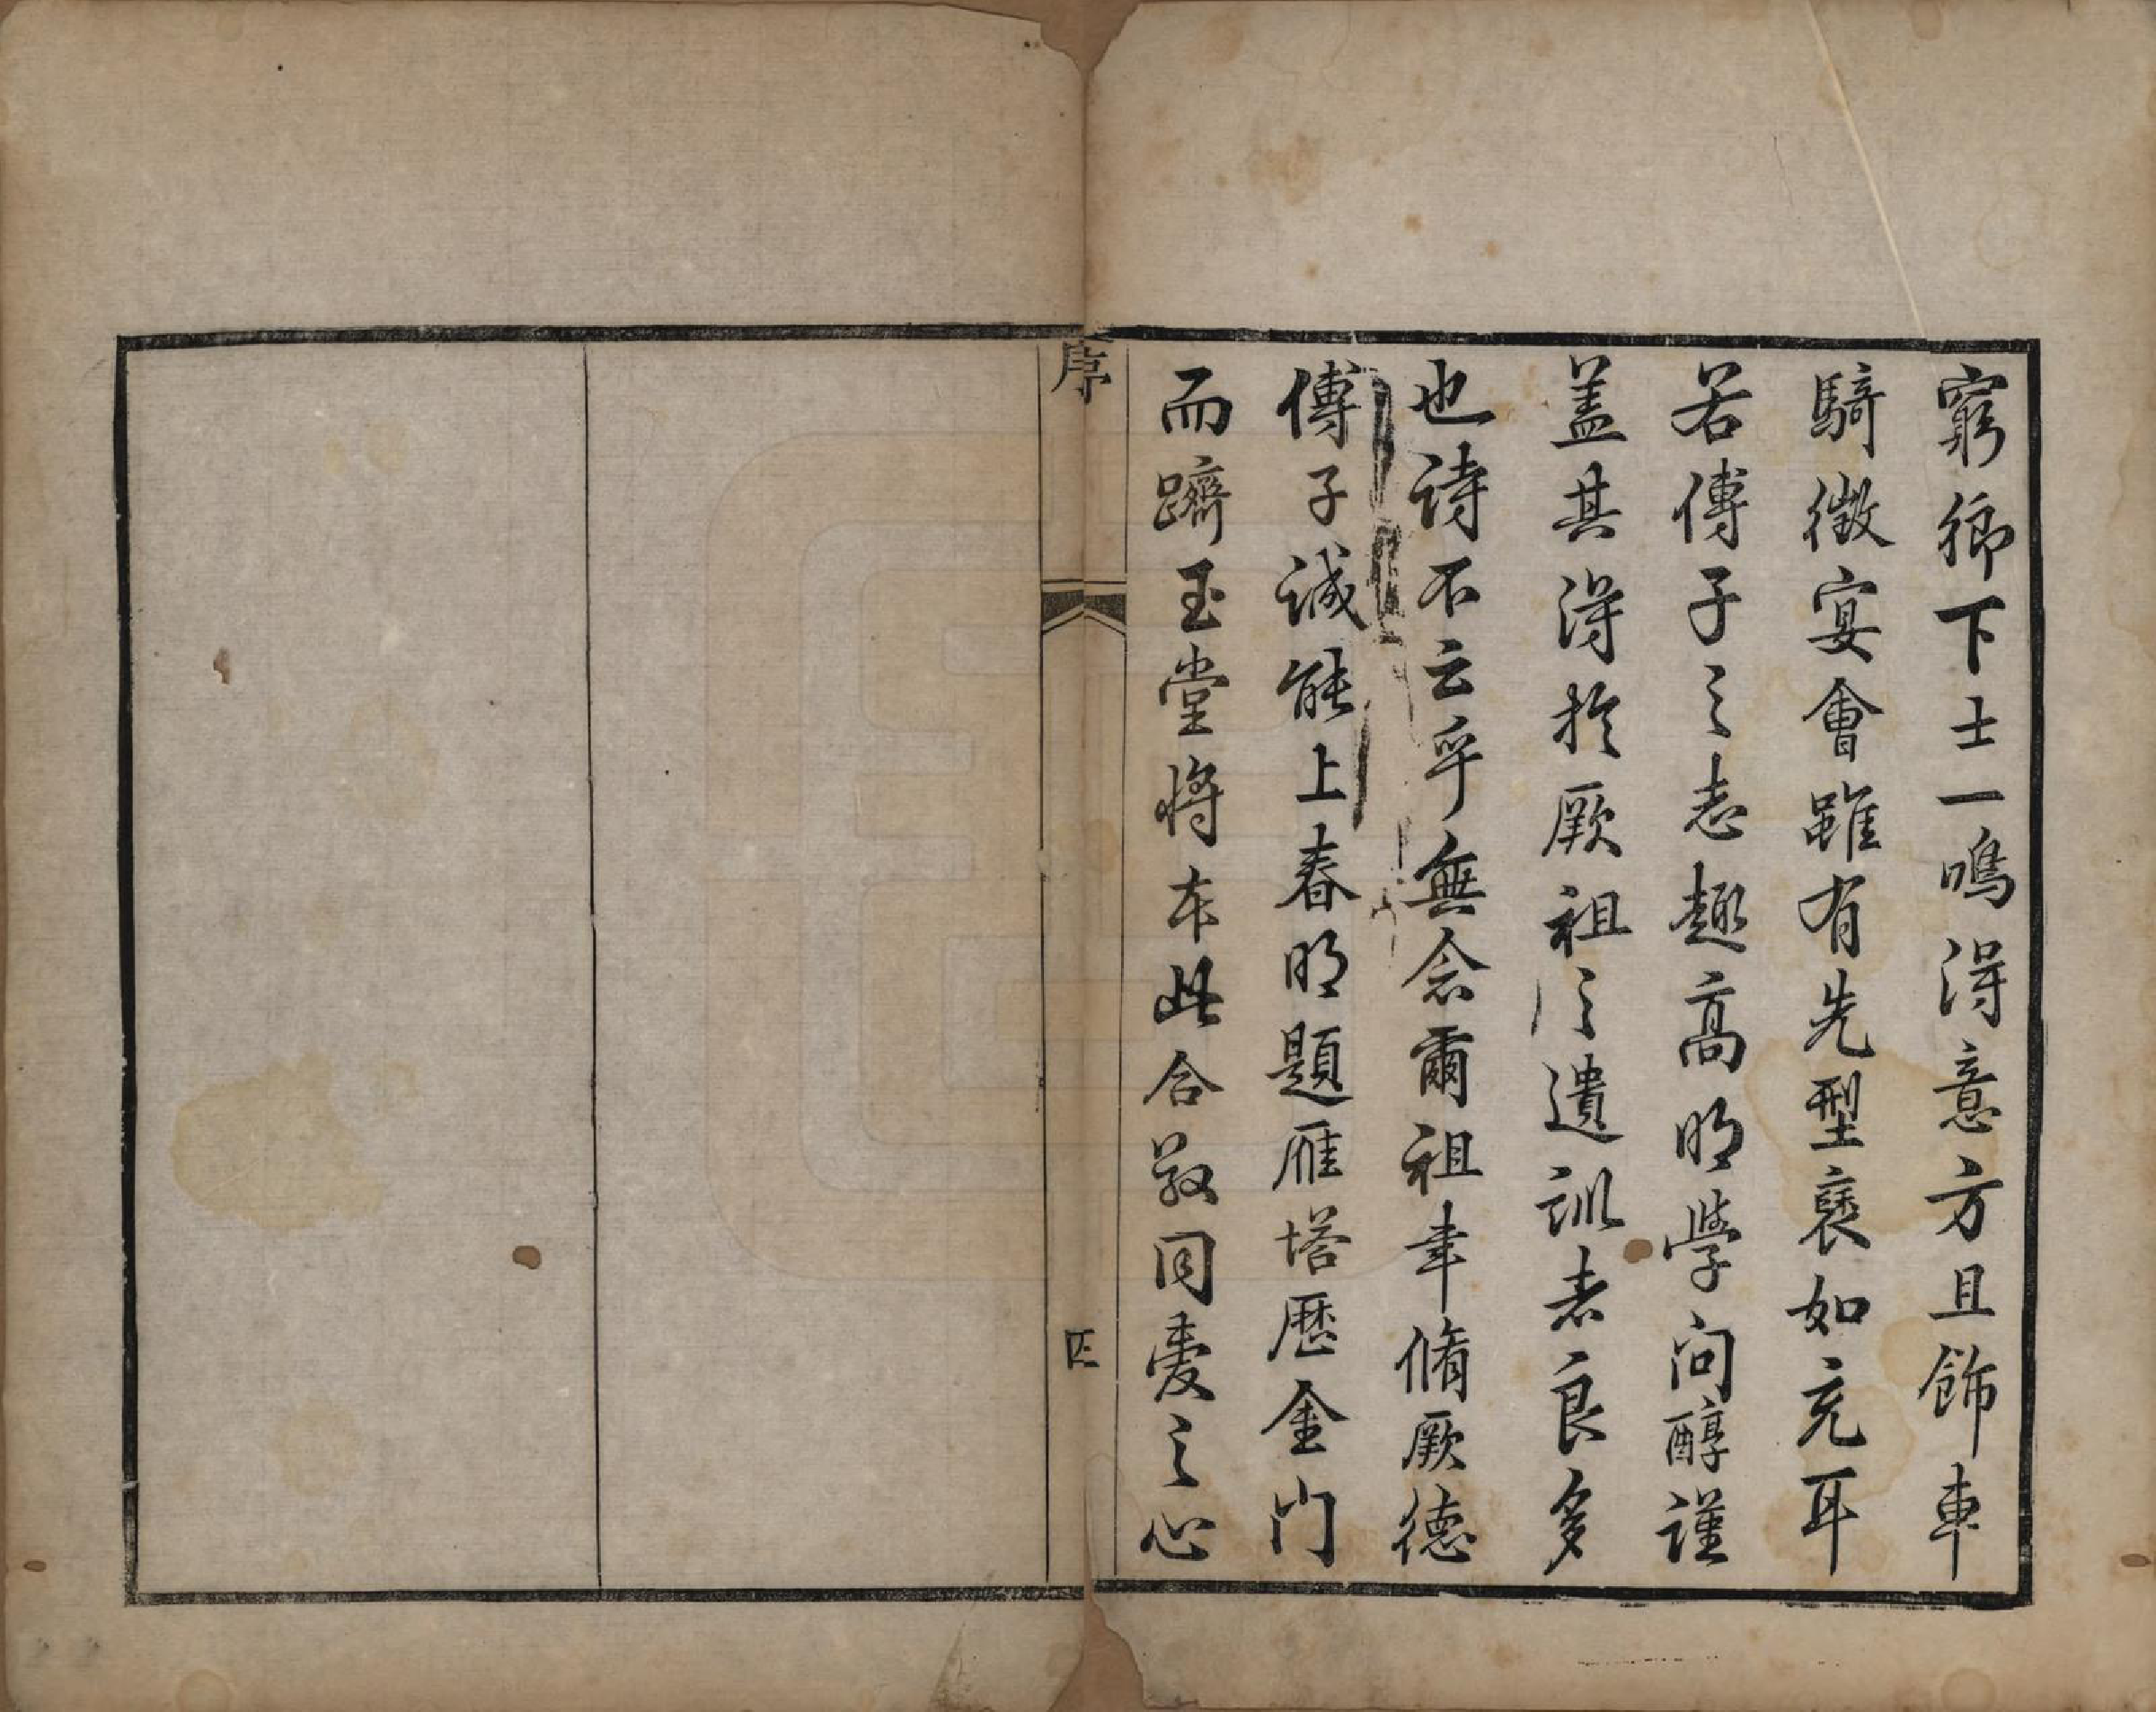 窮鄉下士一鳴得意方且飾車
騎徵宴會雖有先型褎如充耳
若傅子之志趣高明學問醇謹
葢其得於厥祖之遺訓者良多
也詩不云乎無念爾祖聿脩厥德
傅子誠能上春明題雁塔歷金門
而躋玉堂將本此合敬同愛之心
序
四